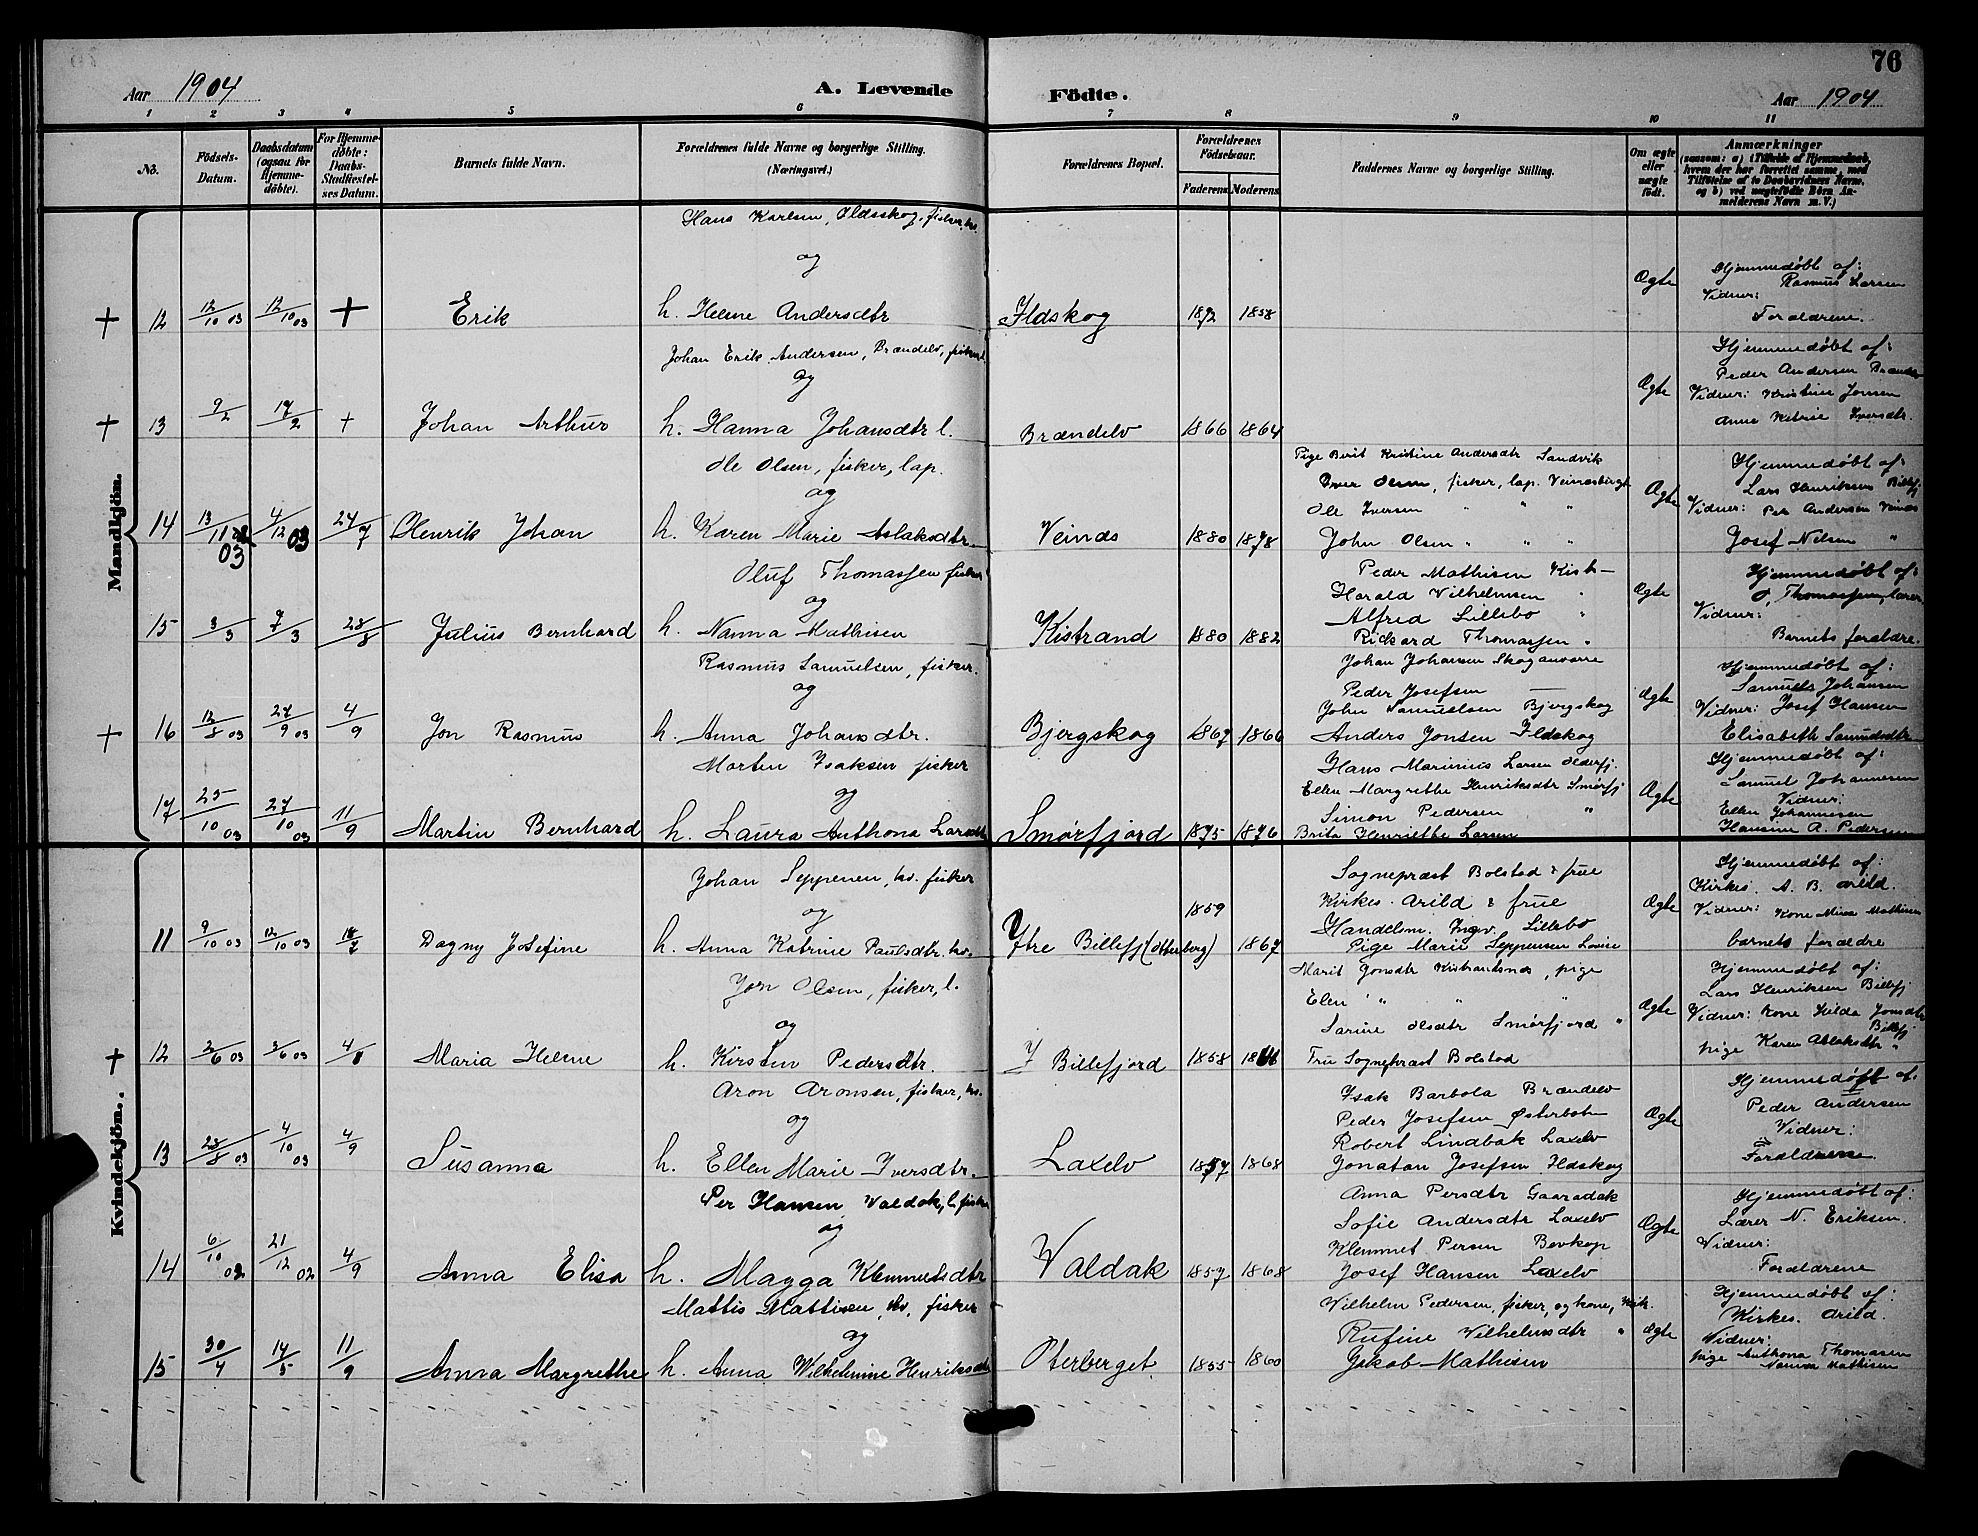 76
Aar 1904
A. Levende Födte.
Aar 1904
1 2 3 4 5 6 7 8 9 10 11
No.
Födsels-Datum.
Daabsdatum (ogsaa for Hjemme-döbte).
For Hjemme-döbte: Daabs-Stadfæstel-ses Datum.
Barnets fulde Navn.
Forældrenes fulde Navne og borgerlige Stilling. (Næringsvei.)
Forældrenes Bopæl.
Forældrenes Födselsaar.
Faderens. Moderens.
Faddernes Navne og borgerlige Stilling.
Om ægte eller uægte födt.
Anmærkninger
(saasom: a) i Tilfælde af Hjemmedaab, hvem der har forrettet samme, med Tilföielse af to Daabsvidners Navne, og b) ved uægtefödte Börn An-melderens Navn m. V.)
Mandkjön.
Hans Karlsen, Ildsskog, fisker, kv.
og
+ 12 12/10 03 12/10 03 + Erik h. Helene Andersdtr Ildskog 1872 1858 Ægte
Hjemmedøbt af:
Rasmus Larsen
Vidner:
Forældrene.
Johan Erik Andersen, Brændelv, fisker l.
og
+ 13 9/2 17/2 + Johan Arthur h. Hanna Johansdtr l. Brændelv 1866 1864 Ægte
Hjemmedøbt af:
Peder Andersen Brændelv
Vidner: Kristine Jonsen
Anne Katrine Iversdtr.
Ole Olsen, fisker, lap.
og
14 13/11 03 4/12 03 24/7 Henrik Johan h. Karen Marie Aslaksdtr Veinds 1880 1878 Ægte
Pige Berit Kristine Andersdtr Sandvik
Iver Olsen, fisker, lap. Veinesbugt
Ole Iversen " " "
John Olsen " " "
Hjemmedøbt af:
Lars Henriksen Billefj
Vidner: Per Andersen Veines
Josef Nilsen "
Oluf Thomassen fisker
og
15 3/3 7/3 28/8 Julius Bernhard h. Nanna Mathisen Kistrand 1880 1882 Ægte
Peder Mathisen Kistr
Harald Vilhelmsen "
Alfred Lillebo "
Rickard Thomassen "
Hjemmedøbt af:
O. Thomassen, lærer
Vidner:
Barnets forældre.
Rasmus Samuelsen, fisker.
og
+ 16 12/8 03 27/9 03 4/9 Jon Rasmus h. Anna Johansdtr. Bjergskog 1867 1866 Ægte
Johan Johansen Skoganvarre
Peder Josefsen —
John Samuelsen Bjergskog
Anders Jonsen Ildskog
Hjemmedøbt af:
Samuel Johansen
Vidner: Josef Hansen
Elisabeth Samuelsdtr
Morten Isaksen fisker
og
17 25/10 03 27/10 03 11/9 Martin Bernhard h. Laura Anthona Larsdtr Smørfjord 1875 1876 Ægte
Hans Marinius Larsen Olderfj.
Ellen Margrethe Henriksdtr Smørfj
Simon Pedersen "
Brita Henriette Larsen
Hjemmedøbt af:
Samuel Johannesen
Vidner:
Ellen Johannesen
Hansine A. Pedersen
Kvindekjön.
Johan Seppenen, kv. fisker
og
11 9/10 03 12/10 03 18/7 Dagny Josefine h. Anna Katrine Paulsdtr. kv. Ytre Billefj (Otterberg) 1859 1867 Ægte
Sognepræst Bolstad & frue
Kirkes. Arild & frue
Handelsm. Ingv. Lillebo
Pige Marie Seppensen Lovise
Hjemmedøbt af:
Kirkes. A. B. Arild.
Vidner: Kone Mina Mathisen
barnets forældre
Jon Olsen, fisker, l.
og
+ 12 2/6 03 3/6 03 4/8 Maria Helene h. Kirsten Pedersdtr. I Billefjord 1858 Ægte
Marit Jonsdtr Kistrandsnes, pige
Elen " " "
Sarine Olsdtr Smørfjord "
Fru Sognepræst Bolstad
Hjemmedøbt af:
Lars Henriksen Billefj
Vidner: Kone Hilda Jonsdtr Billefj
pige Karen Aslaksdtr "
Aron Aronsen, fisker, kv.
og
13 28/8 03 4/10 03 4/9 Susanna h. Ellen Marie Iversdtr. Laxelv 1857 1868 Ægte
Isak Barbola Brændelv
Peder Josefsen Østerbotn
Robert Lindbak Laxelv
Jonatan Josefsen Ildskog
Hjemmedøbt af:
Peder Andersen
Vidner:
Forældrene.
Per Hansen Valdak, l. fisker
og
14 6/10 02 21/12 02 4/9 Anna Elisa h. Magga Klemmetsdtr Valdak 1857 1868 Ægte
Anna Persdtr Gaaradak
Sofie Andersdtr Laxelv
Klemmet Persen Bevkop
Josef Hansen Laxelv
Hjemmedøbt af:
Lærer N. Eriksen.
Vidner:
Forældrene
Mattis Mattisen, kv, fisker
og
15 30/4 14/5 11/9 Anna Margrethe h. Anna Wilhelmine Henriksdtr Oterberget. 1855 1860 Ægte
Wilhelm Pedersen, fisker, og kone, Kistr.
Rufine Wilhelmsdtr "
Jakob Mathisen
Hjemmedøbt af:
Kirkes. Arild.
Vidner:
pige Anthona Thomasen
Nanna Mathisen